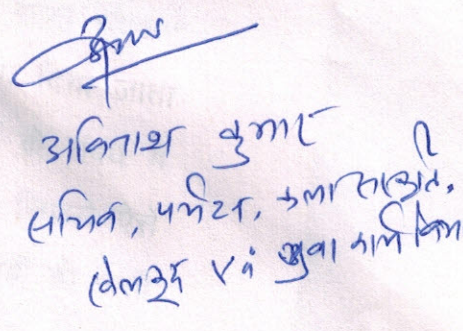 अविनाश कुमार
सचिव, पर्यटन, कला संस्कृति,
खेलकूद एवं युवा कार्य विभाग